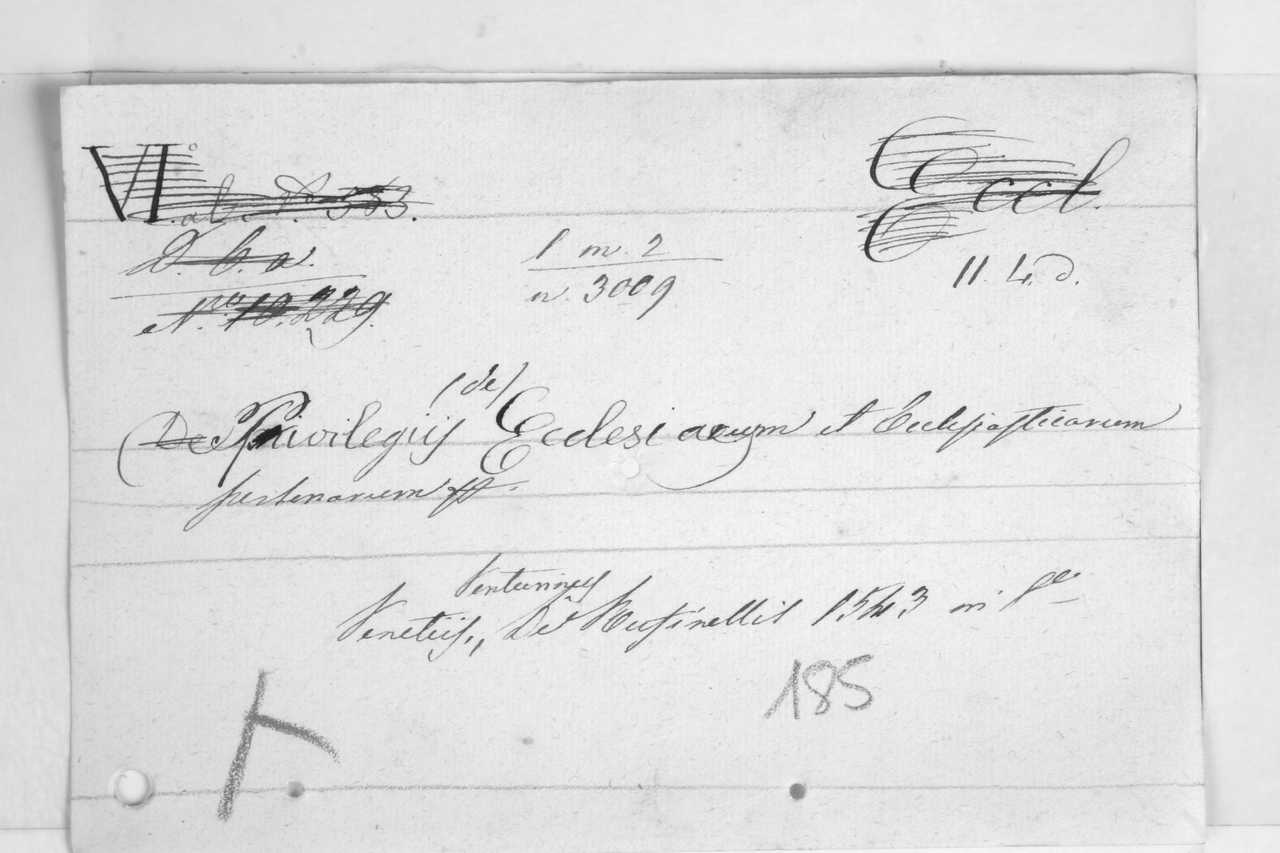 VI.° a b. N.° 583.
Eccl.
D. b. a.
N.ro 10.229.
1 m. 2
n. 3009
11. 4. d.
(De Privilegijs (de) Ecclesiarum et Ecclesiasticarum
personarum
Venturinus
Venetijs, De Ruffinellis 1543 in 8°
185